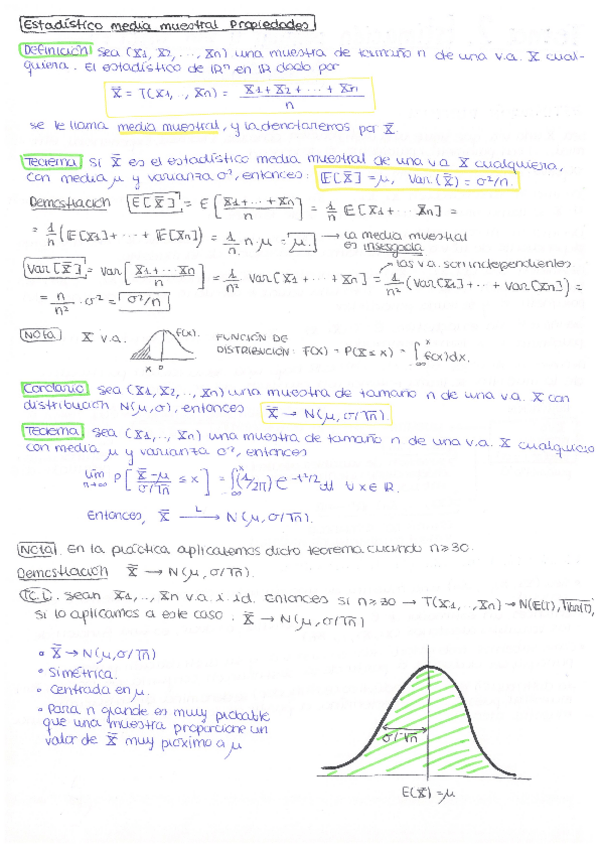 Estadístico media muestral. Propiedades
Definición Sea (X1, X2, ..., Xn) una muestra de tamaño n de una v.a. X cual-
quiera. El estadístico de ℝⁿ en ℝ dado por
X̄ = T(X1, .., Xn) = (X1 + X2 + ... + Xn)/n
se le llama media muestral, y la denotaremos por X̄
Teorema Si X̄ es el estadístico media muestral de una v.a X cualquiera,
con media μ y varianza σ², entonces: E[X̄] = μ, Var.(X̄) = σ²/n.
Demostración E[X̄] = E[(X1 + ... + Xn)/n] = 1/n E[X1 + ... Xn] =
= 1/n (E[X1] + ... + E[Xn]) = 1/n n·μ = μ. → la media muestral
es insesgada
Var[X̄] = Var[(X1 + ... Xn)/n] = 1/n² Var[X1 + ... + Xn] = 1/n² (Var[X1] + ... + Var[Xn]) =
las v.a. son independientes
= n/n² · σ² = σ²/n
Nota X v.a. f(x). FUNCIÓN DE
DISTRIBUCIÓN: F(x) = P(X ≤ x) = ∫_{-∞}^{x} f(x)dx.
x 0
Corolario Sea (X1, X2, .., Xn) una muestra de tamaño n de una v.a. X con
distribución N(μ,σ), entonces X̄ → N(μ, σ/√n)
Teorema Sea (X1, .., Xn) una muestra de tamaño n de una v.a. X cualquiera
con media μ y varianza σ², entonces
lim n→∞ P[(X̄-μ)/(σ/√n) ≤ x] = ∫_{-∞}^{x} (1/√2π) e^{-t²/2} dt ∀x∈ℝ.
Entonces, X̄ →L N(μ, σ/√n).
Nota. En la práctica aplicaremos dicho teorema cuando n≥30.
Demostración X̄ → N(μ, σ/√n).
T.C.L. Sean X1, .., Xn v.a. i.id. Entonces si n≥30 → T(X1, .., Xn) → N(E(T),
si lo aplicamos a este caso. X̄ → N(μ, σ/√n)
• X̄ → N(μ, σ/√n)
• Simétrica.
• Centrada en μ.
• Para n grande es muy probable
que una muestra proporcione un
valor de X̄ muy próximo a μ
σ/√n
E(X̄) = μ